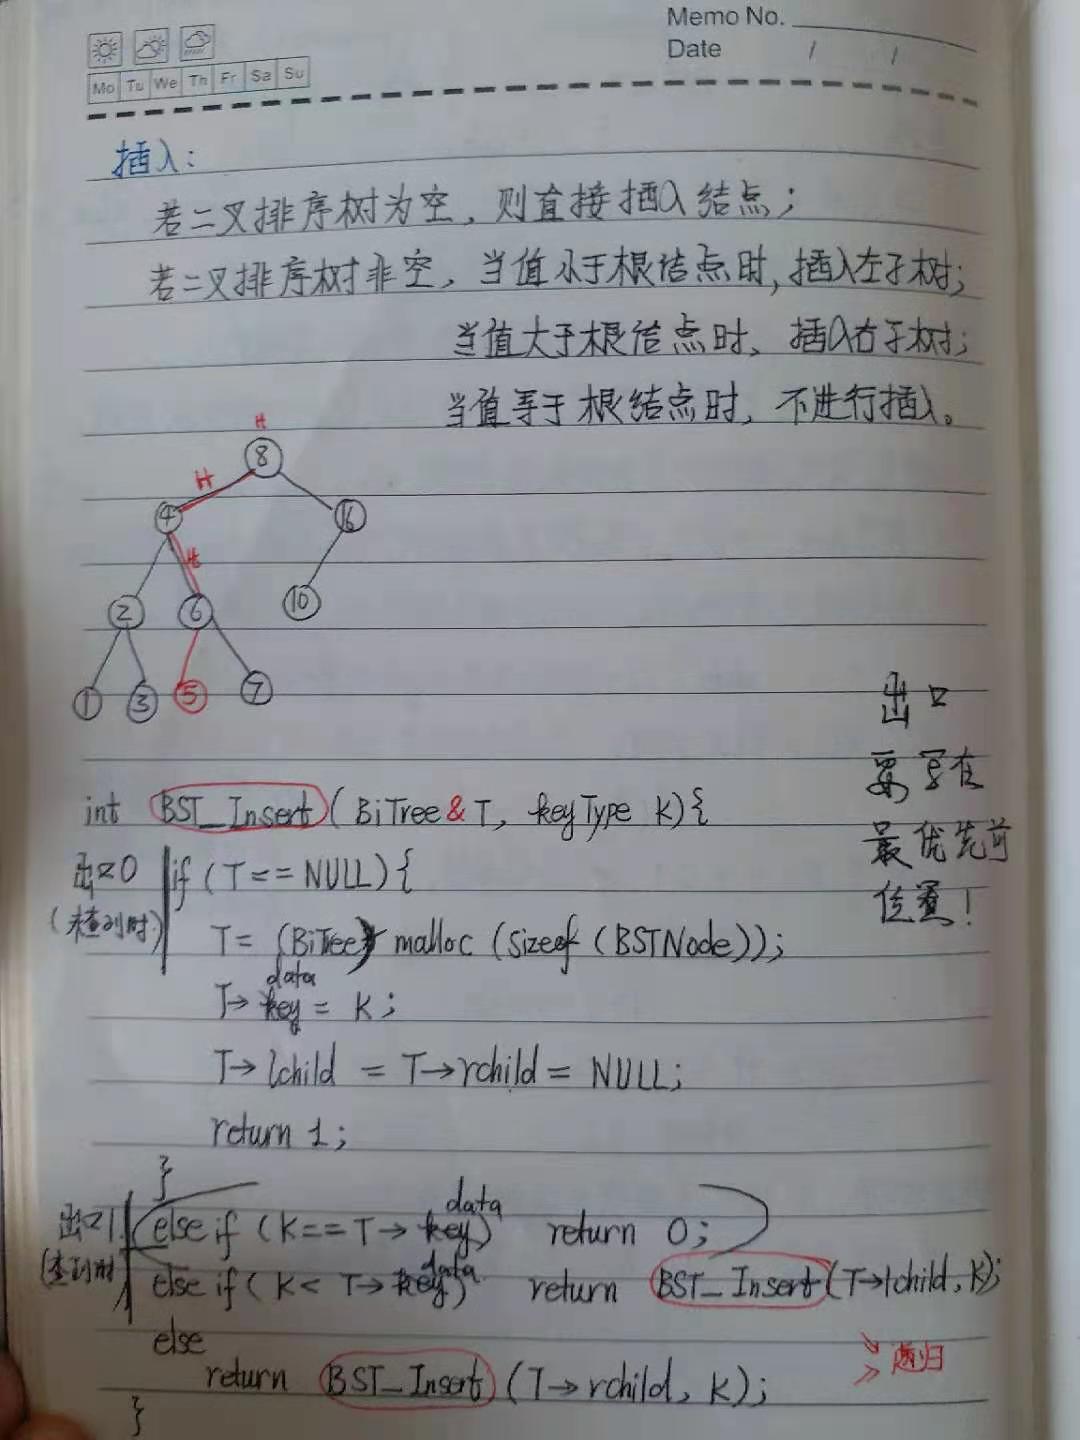 Memo No.
Date / /
Mo Tu We Th Fr Sa Su
插入:
若二叉排序树为空，则直接插入结点；
若二叉排序树非空，当值小于根结点时，插入左子树；
当值大于根结点时，插入右子树；
当值等于根结点时，不进行插入。
8
4 16
2 6 10
1 3 5 7
出口
要写在
最优先前
位置！
int BST_Insert(BiTree& T, keyType K){
出口0 if (T == NULL){
(未查到时)
T = (BiTree) malloc (sizeof (BSTNode));
data
T→ key = K;
T→ lchild = T→rchild = NULL;
return 1;
}
data
出口1 else if (K == T→ key) return 0;
data
(查到时) else if (K < T→ key) return BST_Insert(T→lchild, K);
else
return BST_Insert (T→rchild, K);
递归
}